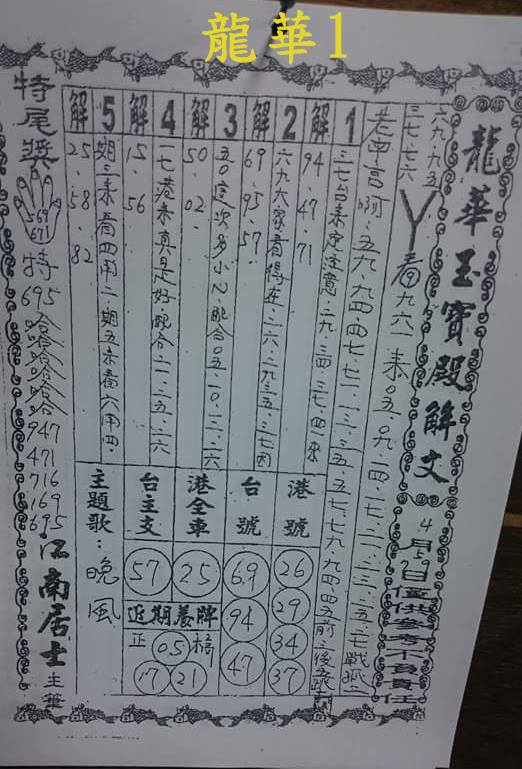 龍華1
龍華玉寶殿解文
4月5.9日僅供參考不負責任
六九.九五
三七.七六
看九六一來.0五.0九.一四.一七.二一.二三.二五.二七戰孤.
1
三七台來定注意.二九.三四.三七.四一來
解
94.47.71
2
六九六家看得在.二六.二九三五.三七內
解
69.95.57.
3
五0這次多小心.配合0五.一0.二一.二六
解
50.02.
4
一七港來真是好.配合二一.二五.二六
解
15.56
5
期三來看四用二.期五來看六用四.
解
25.58.82
港號
26
29
34
37
台號
69
94
47
港全車
25
台主支
57
近期養牌
正
05
17
21
主題歌：晚風
特尾獎
569
671
特
695
哈哈哈哈哈哈
947
471
716
169
695
江南居士主筆